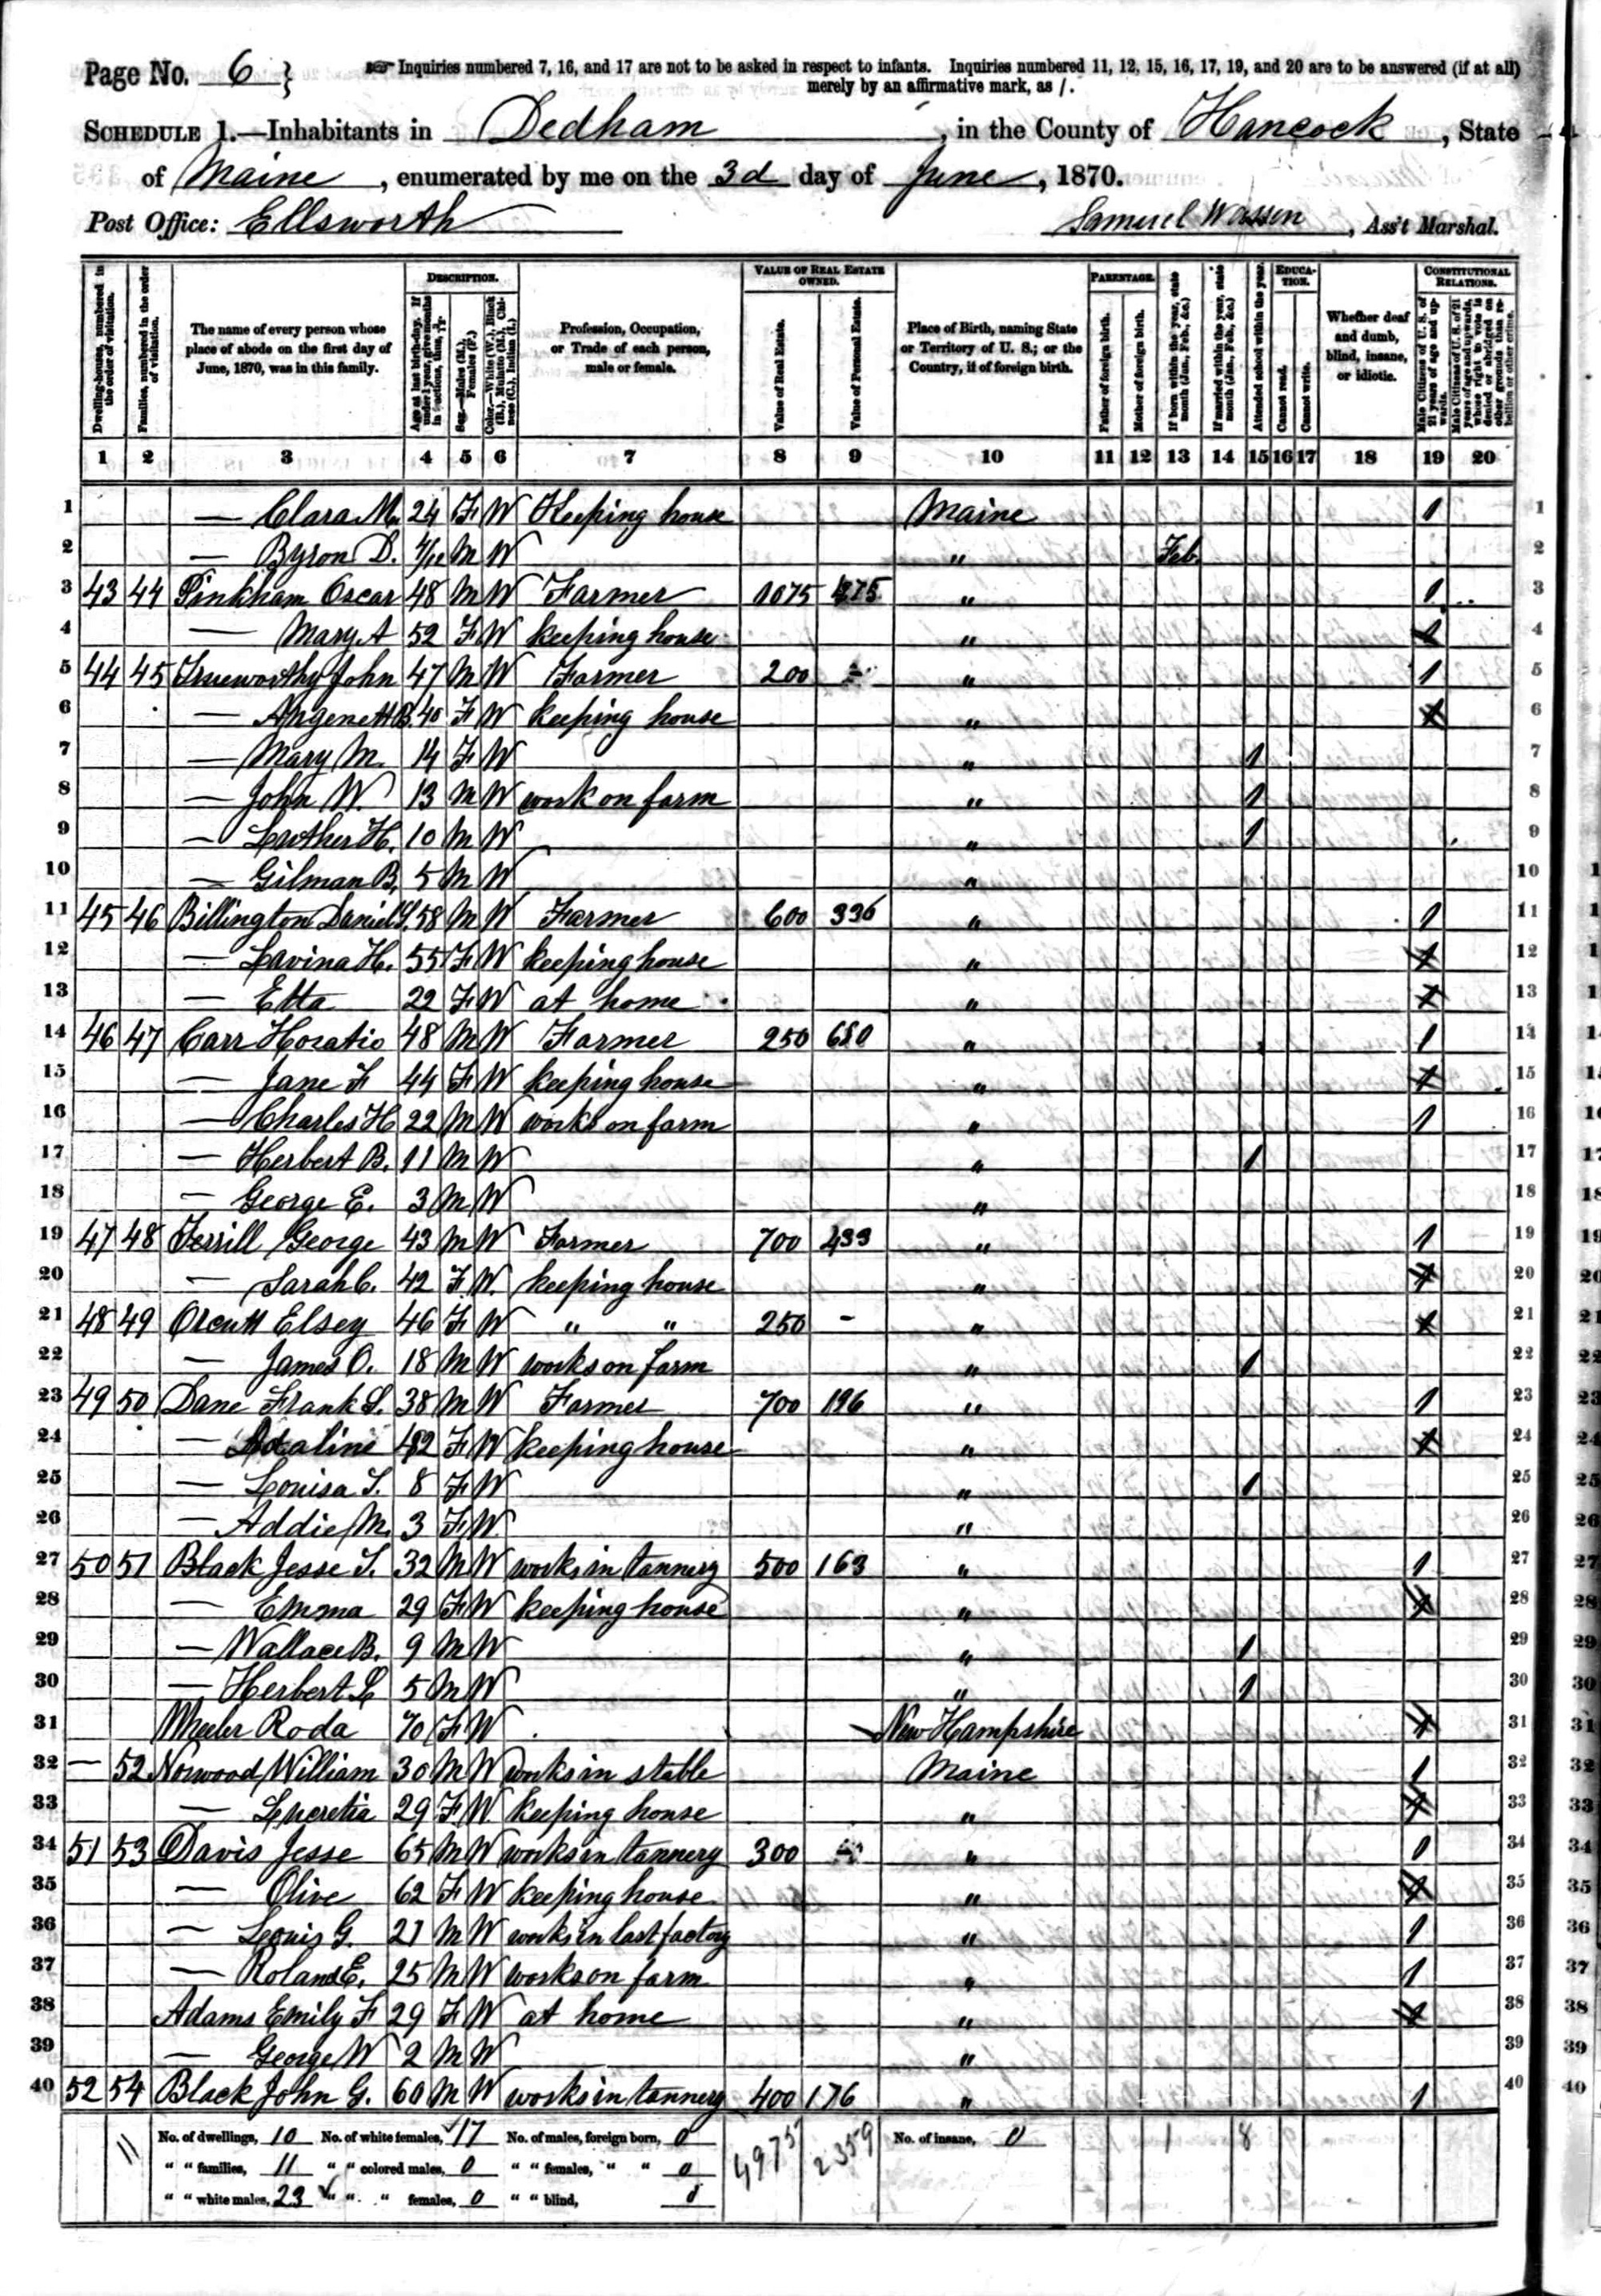 Page No. 6 } Inquiries numbered 7, 16, and 17 are not to be asked in respect to infants. Inquiries numbered 11, 12, 15, 16, 17, 19, and 20 are to be answered (if at all)
merely by an affirmative mark, as /.
SCHEDULE 1.—Inhabitants in Dedham, in the County of Hancock, State
of Maine, enumerated by me on the 3d day of June, 1870.
Post Office: Ellsworth Samuel Wasson, Ass't Marshal.
Dwelling-houses, numbered in the order of visitation.
Families, numbered in the order of visitation.
The name of every person whose place of abode on the first day of June, 1870, was in this family.
DESCRIPTION.
Age at last birth-day. If under 1 year, give months in fractions, thus, 3/12.
Sex.—Males (M.), Females (F.)
Color.—White (W.), Black (B.), Mulatto (M.), Chinese (C.), Indian (I.)
Profession, Occupation, or Trade of each person, male or female.
VALUE OF REAL ESTATE OWNED.
Value of Real Estate.
Value of Personal Estate.
Place of Birth, naming State or Territory of U. S.; or the Country, if of foreign birth.
PARENTAGE.
Father of foreign birth.
Mother of foreign birth.
If born within the year, state month (Jan., Feb., &c.)
If married within the year, state month (Jan., Feb., &c.)
EDUCATION.
Attended school within the year.
Cannot read.
Cannot write.
Whether deaf and dumb, blind, insane, or idiotic.
CONSTITUTIONAL RELATIONS.
Male Citizens of U. S. of 21 years of age and upwards.
Male Citizens of U. S. of 21 years of age and upwards, whose right to vote is denied or abridged on other grounds than rebellion or other crime.
1 2 3 4 5 6 7 8 9 10 11 12 13 14 15 16 17 18 19 20
1 — Clara M. 24 F W Keeping house Maine 1 1
2 — Byron D. 4/12 M W " Feb. 2
3 43 44 Pinkham Oscar 48 M W Farmer 1075 " 1 3
4 — Mary A 52 F W keeping house " 1 4
5 44 45 Trueworthy John 47 M W Farmer 200 - " 1 5
6 — Angenett B. 40 F W keeping house " 1 6
7 — Mary M. 14 F W " 1 7
8 — John W. 13 M W work on farm " 1 8
9 — Luther H. 10 M W " 1 9
10 — Gilman B. 5 M W " 10
11 45 46 Billington Daniel S. 58 M W Farmer 600 336 " 1 11
12 — Lavina H. 55 F W keeping house " 1 12
13 — Etta 22 F W at home " 1 13
14 46 47 Carr Horatio 48 M W Farmer 250 680 " 1 14
15 — Jane F 44 F W keeping house " 1 15
16 — Charles H 22 M W works on farm " 1 16
17 — Herbert B. 11 M W " 1 17
18 — George E. 3 M W " 18
19 47 48 Ferrill George 43 M W Farmer 700 433 " 1 19
20 — Sarah C. 42 F. W. keeping house " 1 20
21 48 49 Orcutt Elsey 46 F W " " 250 - " 1 21
22 — James O. 18 M W works on farm " 1 22
23 49 50 Dane Frank L. 38 M W Farmer 700 196 " 1 23
24 — Adaline 42 F W keeping house " 1 24
25 — Louisa T. 8 F W " 1 25
26 — Addie M. 3 F W " 26
27 50 51 Black Jesse T. 32 M W works in tannery 500 163 " 1 27
28 — Emma 29 F W keeping house " 1 28
29 — Wallace B. 9 M W " 1 29
30 — Herbert L 5 M W " 1 30
31 Wheeler Roda 70 F W New Hampshire 1 31
32 — 52 Norwood William 30 M W works in stable Maine 1 32
33 — Lucretia 29 F W keeping house " 1 33
34 51 53 Davis Jesse 65 M W works in tannery 300 - " 1 34
35 — Olive 62 F W keeping house " 1 35
36 — Leonis G. 21 M W works in last factory " 1 36
37 — Roland E. 25 M W works on farm " 1 37
38 Adams Emily F 29 F W at home " 1 38
39 — George W 2 M W " 39
40 52 54 Black John G. 60 M W works in tannery 400 176 " 1 40
11 No. of dwellings, 10 No. of white females, 17 No. of males, foreign born, 0 4975 2359 No. of insane, 0 1 8
" " families, 11 " " colored males, 0 " " females, " " 0
" " white males, 23 " " " females, 0 " " blind, 0